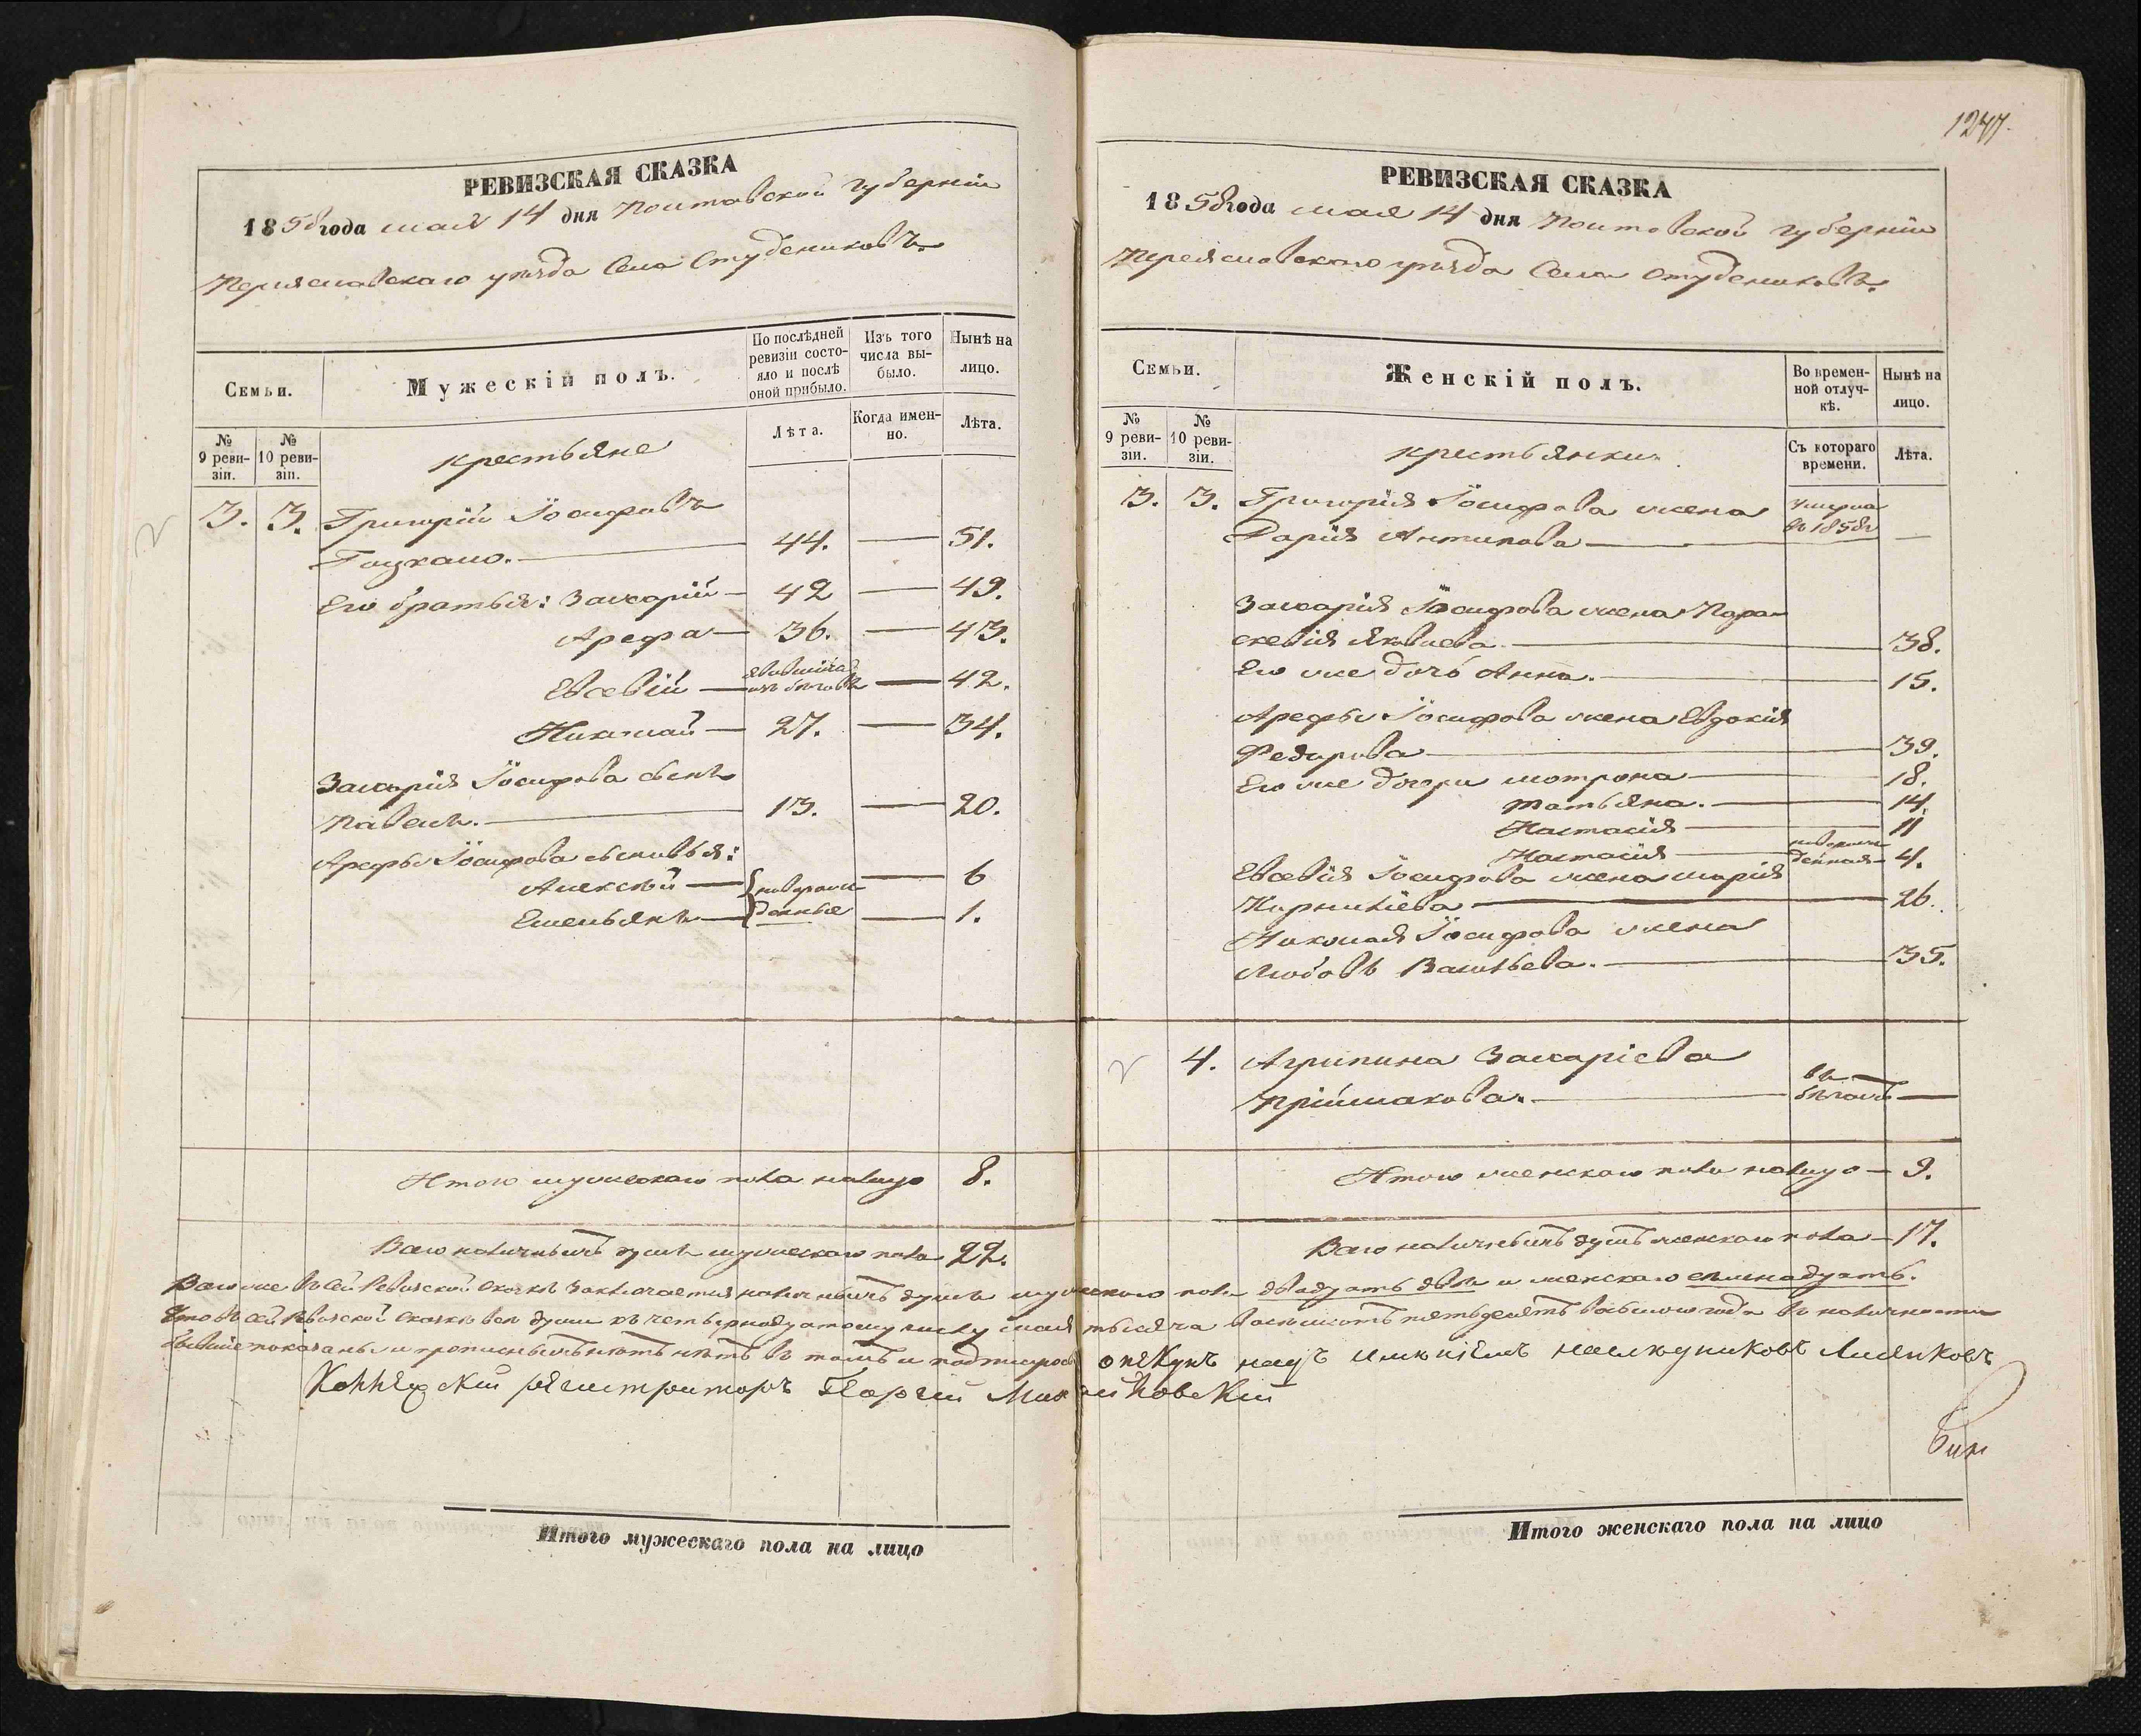 РЕВИЗСКАЯ СКАЗКА
1858 года мая 14 дня Полтавской губерніи
Переяславскаго уѣзда Села Студениковъ.
Семьи.
Мужескій полъ.
По послѣдней ревизіи состояло и послѣ оной прибыло.
Изъ того числа выбыло.
Нынѣ на лицо.
№ 9 ревизіи.
№ 10 ревизіи.
крестьяне
Лѣта.
Когда именно.
Лѣта.
3. 3. Григорій Іосифовъ
44. 51.
Его братья: Захарій 42 49.
Арефа 36. 43.
Евсевій явившійся изъ бѣговъ 42.
Николай 27. 34.
Захарія Іосифова сынъ
Павелъ. 13. 20.
Арефы Іосифова сыновья:
Алексѣй новорож- 6
Емельянъ денные 1.
Итого мужескаго пола налицо 8.
Всего наличныхъ душъ мужескаго пола 22.
Итого мужескаго пола на лицо
1247.
РЕВИЗСКАЯ СКАЗКА
1858 года мая 14 дня Полтавской губерніи
Переяславскаго уѣзда Села Студениковъ.
Семьи.
Женскій полъ.
Во временной отлучкѣ.
Нынѣ на лицо.
№ 9 ревизіи.
№ 10 ревизіи.
крестьянки
Съ котораго времени.
Лѣта.
3. 3. Григорія Іосифова жена умерла
Дарія Антипова въ 1858г
Захарія Іосифова жена Пара-
скевія Яковлева 38.
Его же дочь Анна. 15.
Арефы Іосифова жена Евдокія
Федорова 39.
Его же дочери Мотрона 18.
Татьяна. 14.
Настасія 11
Настасія новорожденная 4.
Евсевія Іосифова жена Марія
Корнилієва 26.
Николая Іосифова жена
Любовь Васильева. 35.
4. Агрипина Захаріева
Пріймакова. въ бѣгахъ
Итого женскаго пола налицо 9.
Всего наличныхъ душъ женскаго пола 17.
Всего же въ сей Ревизской Сказкѣ заключается наличныхъ душъ мужескаго пола двадцать двѣ и женскаго семнадцать.
Что въ сей Ревизской Сказкѣ всѣ души къ четырнадцатому числу мая тысяча восемьсотъ пятьдесятъ восьмого года въ наличности
бывшіе показаны и прописныхъ нѣтъ въ томъ и подписуюсь опекунъ надъ имѣніемъ наслѣдниковъ
регистраторъ Георгій
Итого женскаго пола на лицо